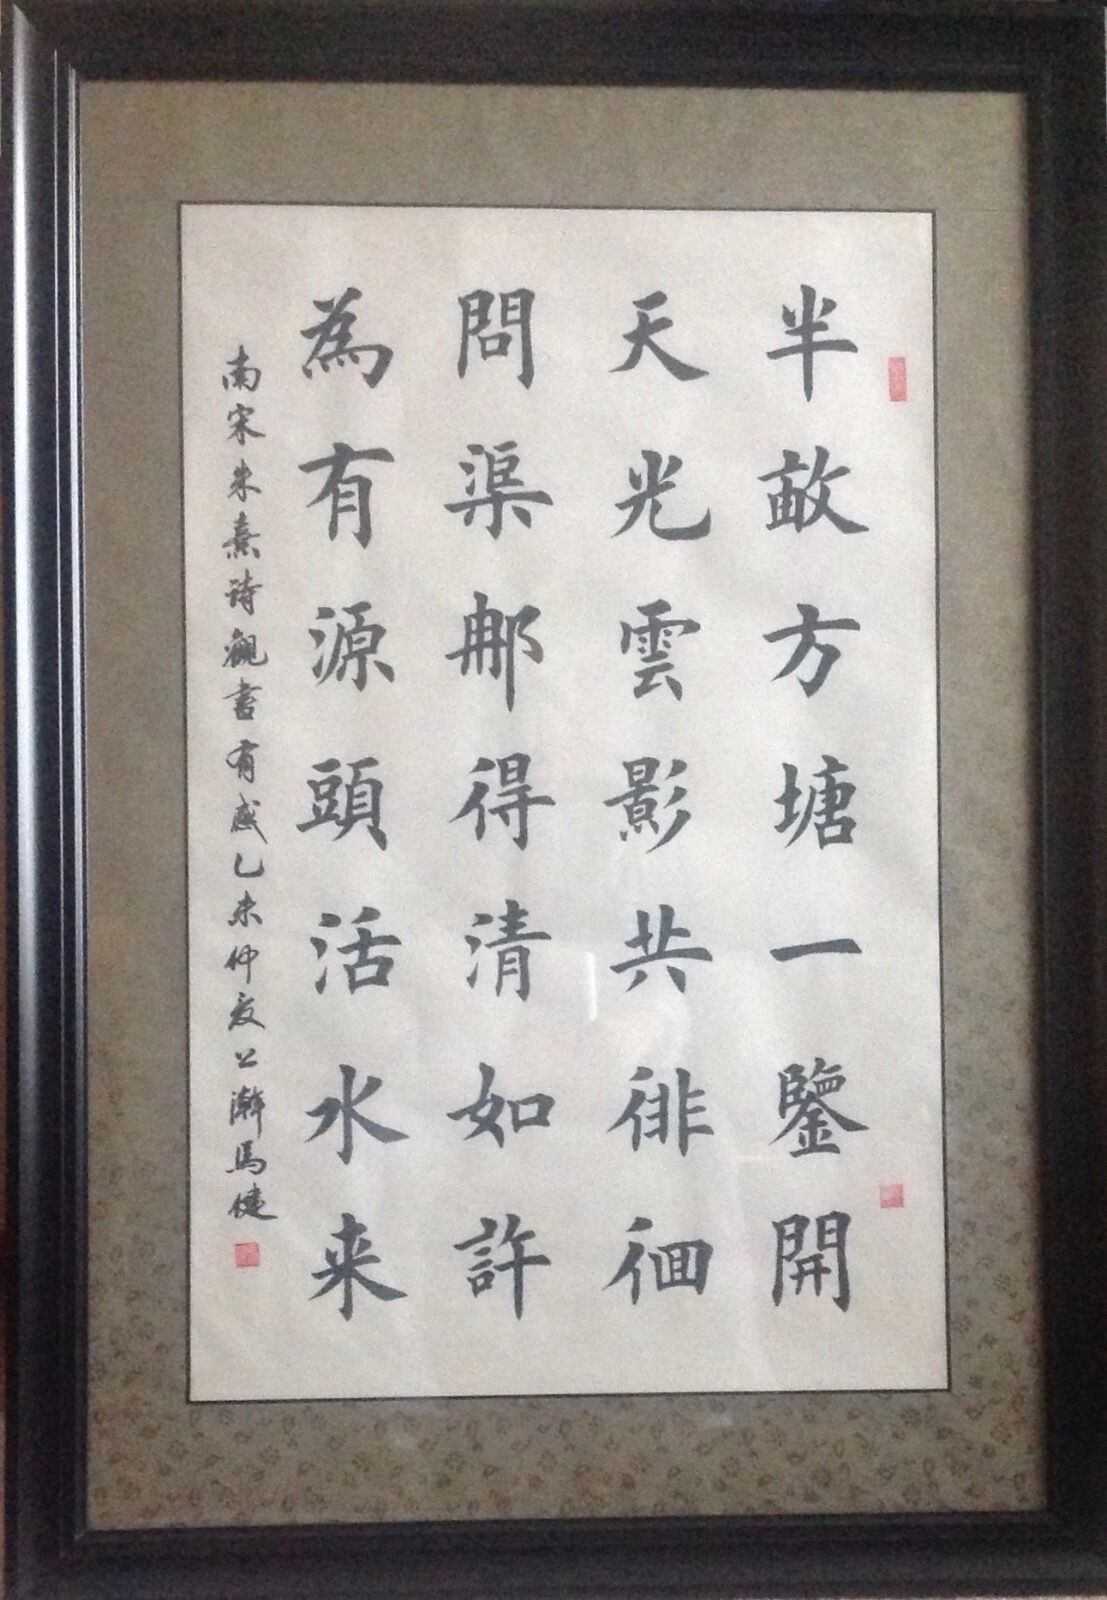 半畝方塘一鑒開
天光雲影共徘徊
問渠那得清如許
為有源頭活水来
南宋朱熹诗觀書有感乙未仲夏公瀚馬健